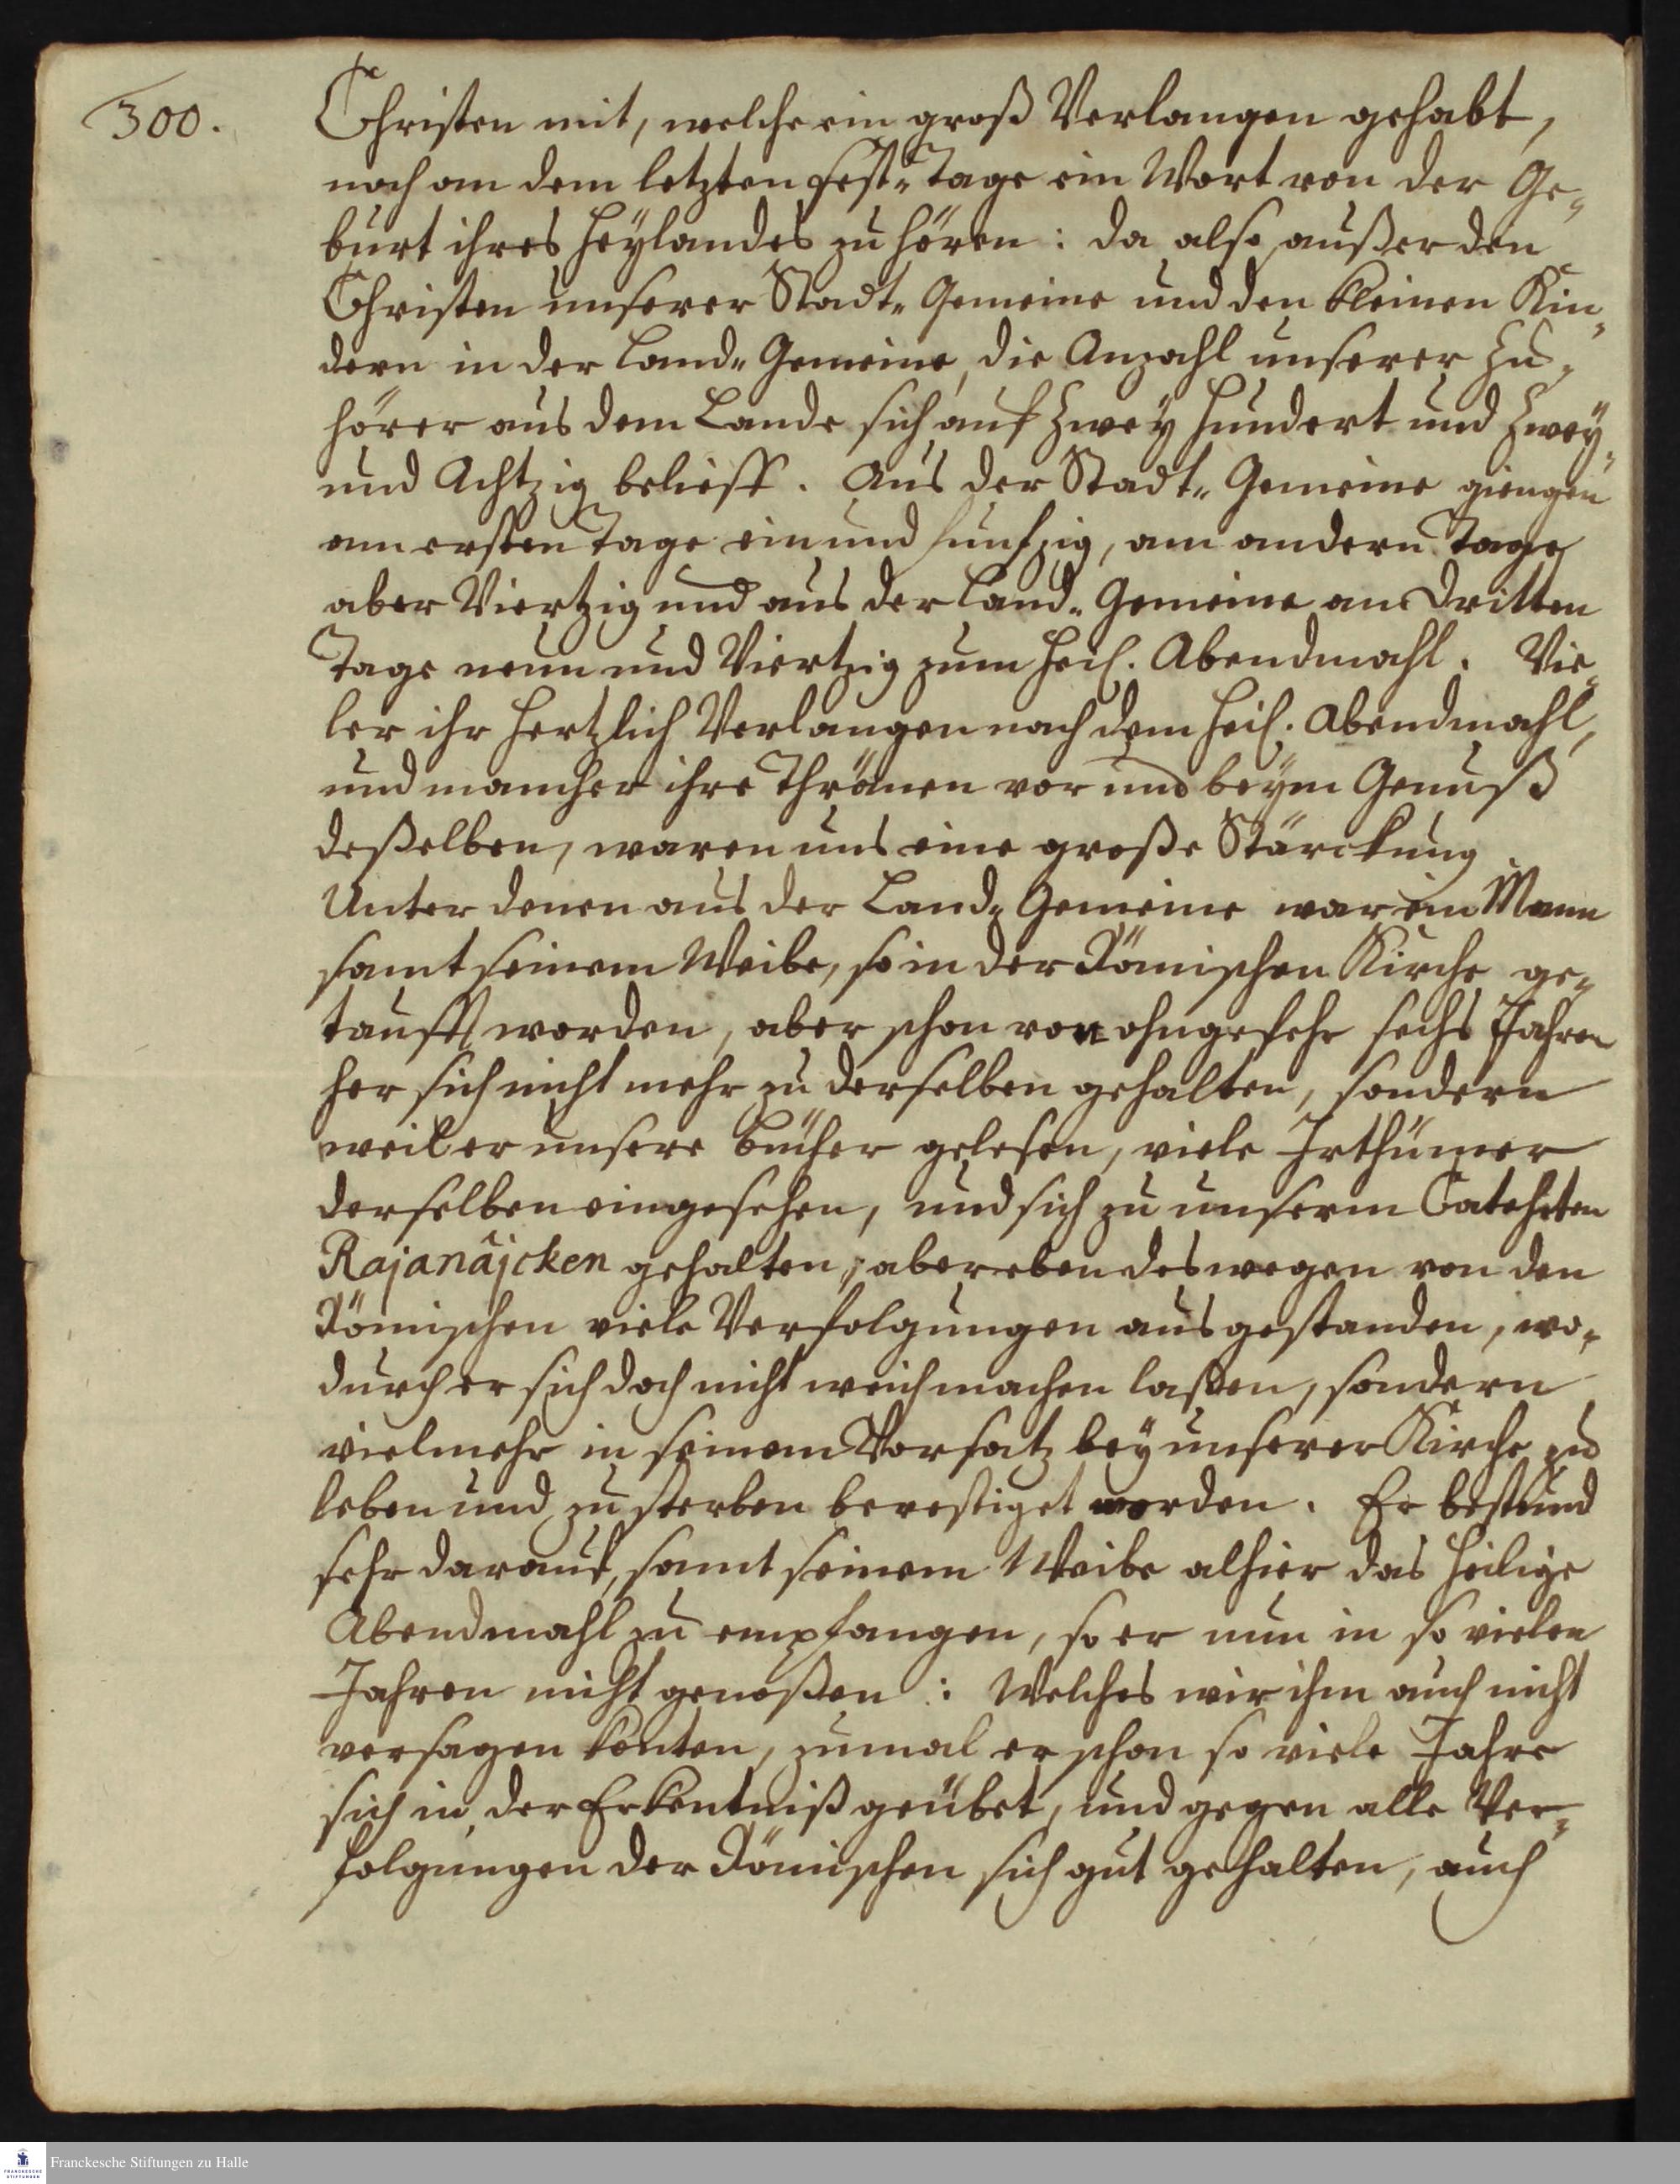 300.
Christen mit, welche ein groß Verlangen gehabt,
noch am dem letzten Fest-Tage ein Wort von der Ge-
burt ihres Heylandes zu hören: da also außer den
Christen unserer Stadt-Gemeine und den kleinen Kin-
dern in der Land-Gemeine, die Anzahl unserer Zu-
hörer aus dem Lande sich auf Zwey hundert und Zwey-
und Achtzig belieff. Aus der Stadt-Gemeine giengen
am ersten Tage ein und funfzig, am andern Tage
aber Viertzig und aus der Land-Gemeine am dritten
Tage neun und Viertzig zum heil. Abendmahl. Vie-
ler ihr hertzlich Verlangen nach dem heil. Abendmahl,
und mancher ihre Thränen vor und beym Genuß
deßelben, waren uns eine große Stärckung
Unter denen aus der Land-Gemeine war ein Mann
samt seinem Weibe, so in der Römischen Kirche ge-
taufft worden, aber schon von ohngefehr sechs Jahren
her sich nicht mehr zu derselben gehalten, sondern
weil er unsere Bücher gelesen, viele Irthümer
derselben eingesehen, und sich zu unserm Catecheten
Rajanâjcken gehalten; aber eben deswegen von den
Römischen viele Verfolgungen ausgestanden, wo-
durch er sich doch nicht weich machen laßen, sondern
vielmehr in seinem Vorsatz bey unserer Kirche zu
leben und zu sterben bevestiget worden. Er bestund
sehr darauf, samt seinem Weibe alhier das heilige
Abendmahl zu empfangen, so er nun in so vielen
Jahren nicht genoßen: Welches wir ihm auch nicht
versagen konten, zumal er schon so viele Jahre
sich in der Erkentniß geübet, und gegen alle Ver-
folgungen der Römischen sich gut gehalten, auch
Franckesche Stiftungen zu Halle